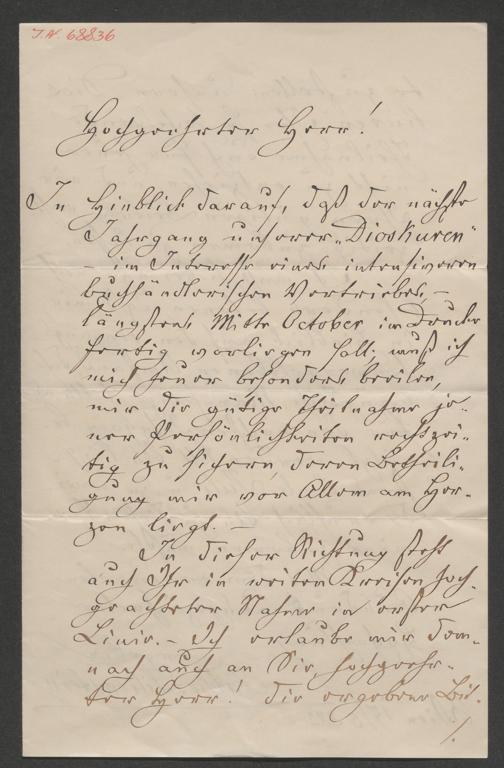 J.N. 68836
Hochgeehrter Herr!
In Hinblick darauf, daß der nächste
Jahrgang unserer „Dioskuren"
– im Interesse eines intensiveren
buchhändlerischen Vertriebes, –
längstens Mitte October im Drucke
fertig vorliegen soll, muß ich
mich heuer besonders beeilen,
mir die gütige Theilnahme je-
ner Persönlichkeiten rechtzei-
tig zu sichern, deren Betheili-
gung mir vor Allem am Her-
zen liegt. –
In dieser Richtung steht
auch Ihr in weiten Kreisen hoch-
geachteter Name in erster
Linie. – Ich erlaube mir dem-
nach auch an Sie, hochgeehr-
ter Herr! die ergebene Bit-
./.